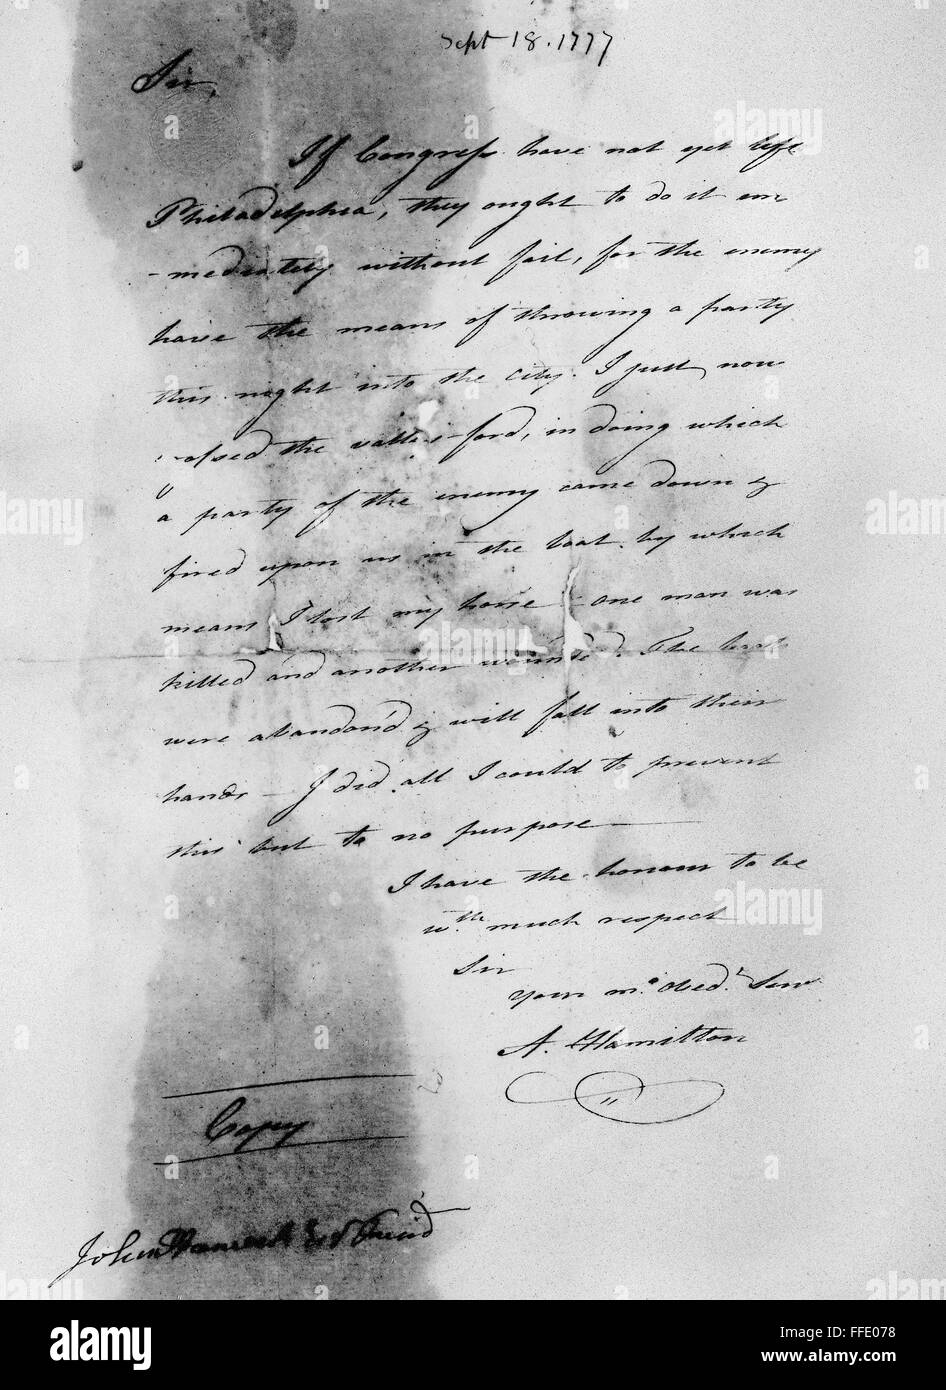 Sept 18. 1777
Sir,
If Congress have not yet left
Philadelphia, they ought to do it im
-mediately without fail, for the enemy
have the means of throwing a party
this night into the city. I just now
crossed the valley-ford, in doing which
a party of the enemy came down &
fired upon us in the boat by which
means I lost my horse – one man was
killed and another wounded. The boats
were abandon'd & will fall into their
hands – I did all I could to prevent
this but to no purpose
I have the honour to be
wth. much respect
Sir
Your mo. Obed.t Serv
A. Hamilton
Copy
John Hancock Esqr
alamy
alamy
alamy
alamy
alamy
alamy
alamy
alamy
Image ID: FFE078
www.alamy.com